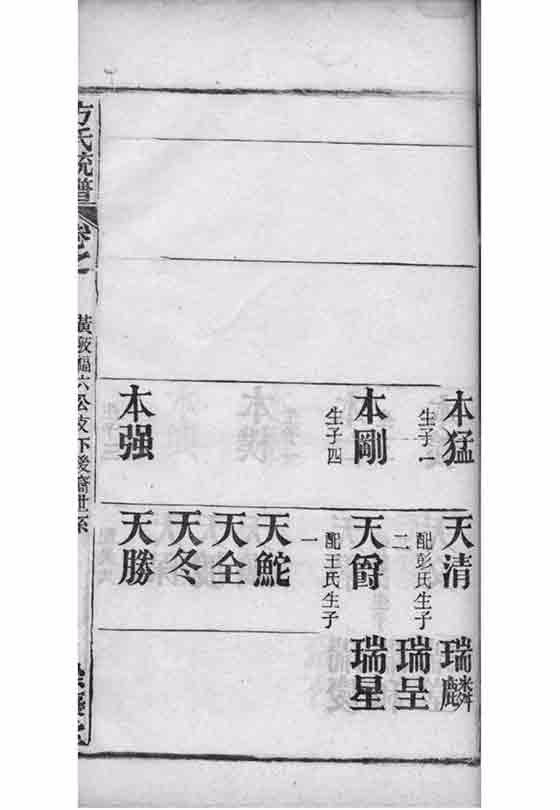 本猛
生子一
本剛
生子四
本强
天清
配彭氏生子
二
天爵
配王氏生子
一
天鮀
天全
天冬
天勝
瑞麟
瑞呈
瑞星
方氏統譜
卷之
黃陂福六公支下後裔世系